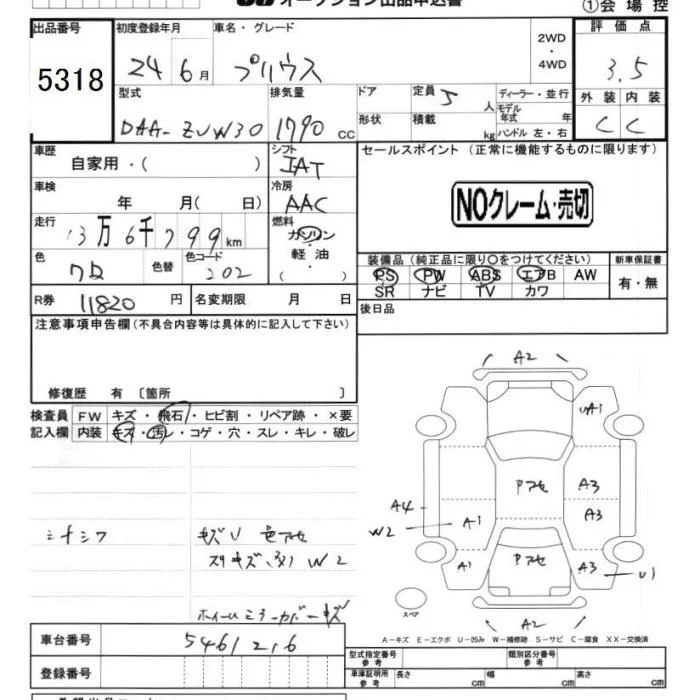 オークション出品申込書
①会場控
出品番号 初度登録年月 車名・グレード 2WD・4WD 評価点
5318 24年6月 プリウス 3.5
型式 排気量 ドア 定員 5人 ディーラー・並行 外装 内装
DAA-ZVW30 1790cc 形状 積載 kg モデル年式 年 ハンドル 左・右 C C
車歴 シフト セールスポイント (正常に機能するものに限ります)
自家用・( ) IAT
車検 冷房
年 月( 日) AAC NOクレーム・売切
走行 燃料
13万6千799km ガソリン・軽油・( )
色 色替 色コード 装備品 (純正品に限り○をつけてください) 新車保証書
クロ 202 PS PW ABS エアB AW 有・無
SR ナビ TV カワ
R券 11820円 名変期限 月 日 後日品
注意事項申告欄(不具合内容等は具体的に記入して下さい)
修復歴 有〔箇所 〕
検査員 FW キズ・飛石・ヒビ割・リペア跡・×要
記入欄 内装 キズ・汚レ・コゲ・穴・スレ・キレ・破レ
A2
UA1
Pアセ A3
A4 A3
W2 A1
A1 Pアセ A3 U1
A2
スペア
キズU 色アセ
W2
ホイールミラーカバーキズ
A-キズ E-エクボ U-凹み W-補修跡 S-サビ C-腐食 XX-交換済
車台番号 5461216
登録番号
型式指定番号 参考 類別区分番号 参考
車庫証明用 参考 長さ cm 幅 cm 高さ cm